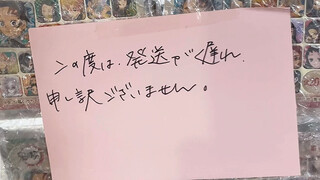 この度は、発送が遅れ、
申し訳ございません。